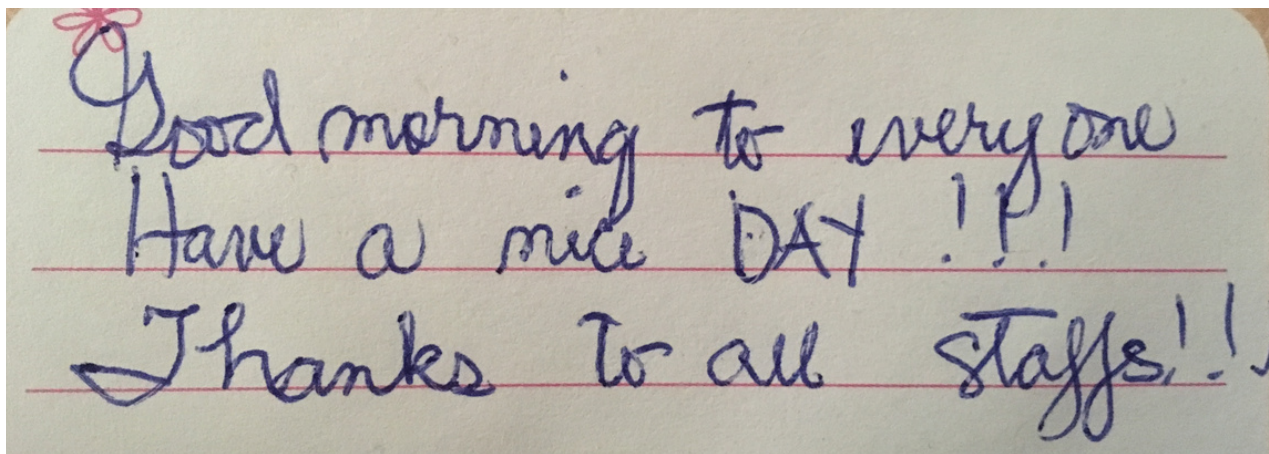 Good morning to everyone
Have a nice DAY !!!
Thanks to all staffs!!